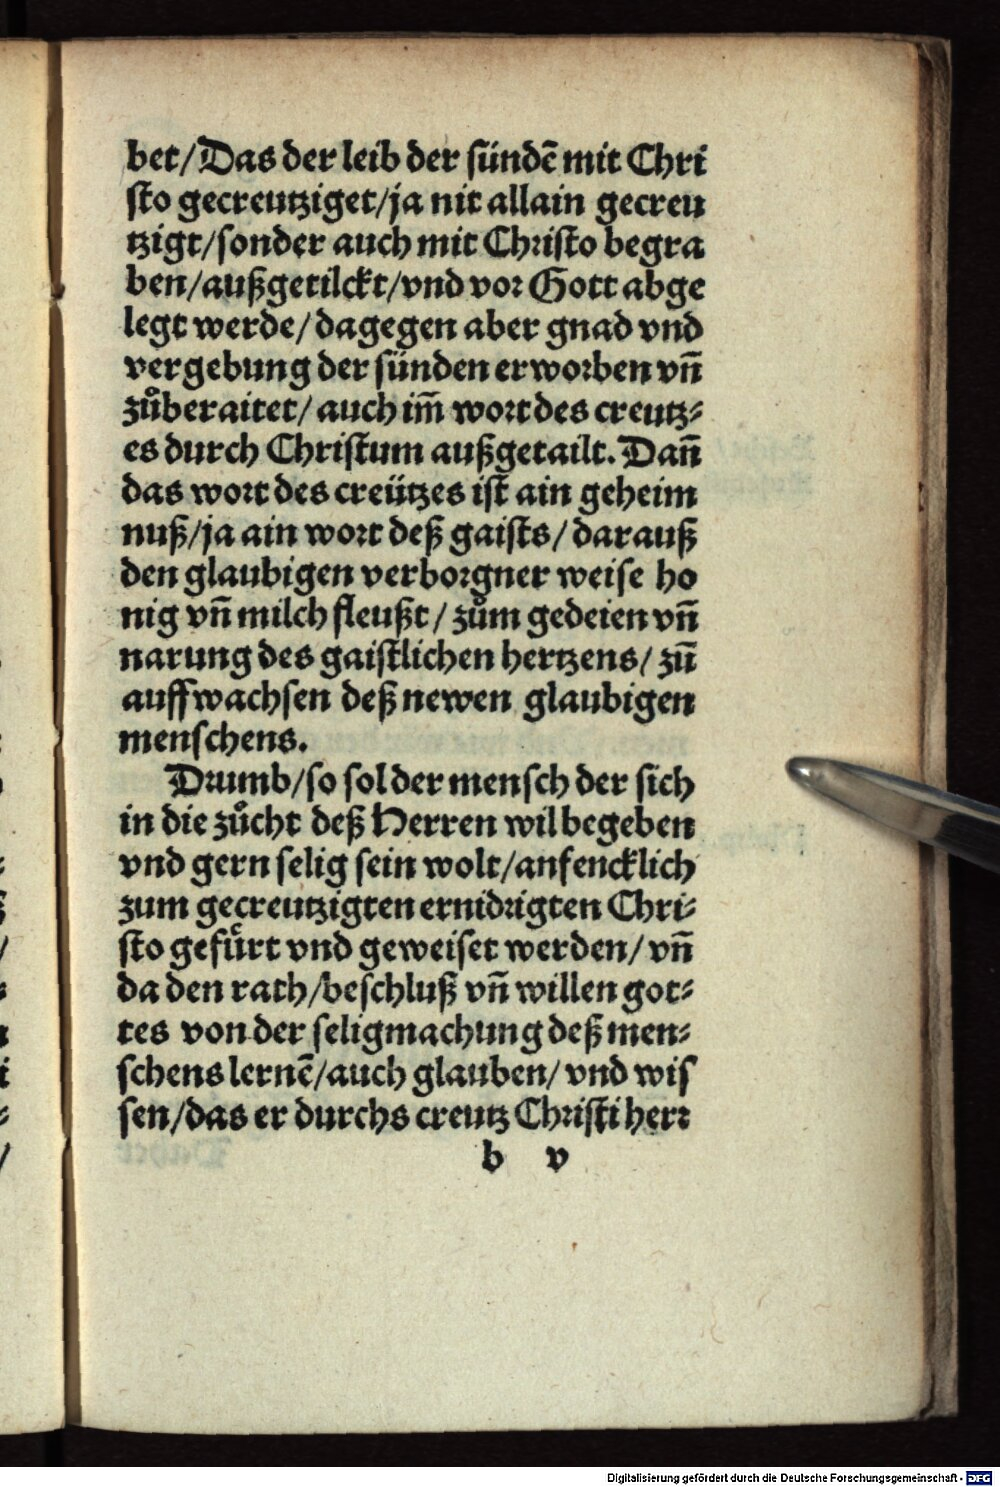 bet/Das der leib der sündē mit Chri
sto gecreutziget/ja nit allain gecreu
tzigt/sonder auch mit Christo begra
ben/außgetilckt/vnd vor Gott abge
legt werde/dagegen aber gnad vnd
vergebung der sünden erworben vn̄
zůberaitet/auch im̄ wort des creutz⸗
es durch Christum außgetailt. Dan̄
das wort des creützes ist ain geheim
nuß/ja ain wort deß gaists/darauß
den glaubigen verborgner weise ho
nig vn̄ milch fleußt/zům gedeien vn̄
narung des gaistlichen hertzens/zū
auffwachsen deß newen glaubigen
menschens.
Drumb/so sol der mensch der sich
in die zůcht deß Herren wil begeben
vnd gern selig sein wolt/anfencklich
zum gecreutzigten ernidrigten Chri⸗
sto gefůrt vnd geweiset werden/vn̄
da den rath/beschluß vn̄ willen got⸗
tes von der seligmachung deß men⸗
schens lernē/auch glauben/vnd wis
sen/das er durchs creutz Christi herr
b v
Digitalisierung gefördert durch die Deutsche Forschungsgemeinschaft - DFG